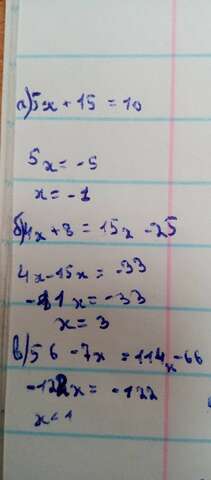 а) 5x + 15 = 10
5x = -5
x = -1
б) 4x + 8 = 15x - 25
4x - 15x = -33
-11x = -33
x = 3
в) 56 - 7x = 114x - 66
-122x = -122
x = 1